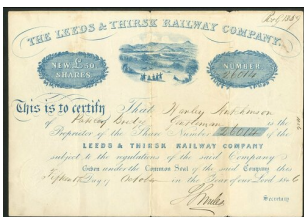 THE LEEDS & THIRSK RAILWAY COMPANY.
NEW £50 SHARES
NUMBER
26014
This is to certify That Henley Hutchinson
of
is the
Proprietor of the Share Number 26014 of the
LEEDS & THIRSK RAILWAY COMPANY
subject to the regulations of the said Company
Given under the Common Seal of the said Company this
Day of October in the Year of our Lord 1846
Secretary